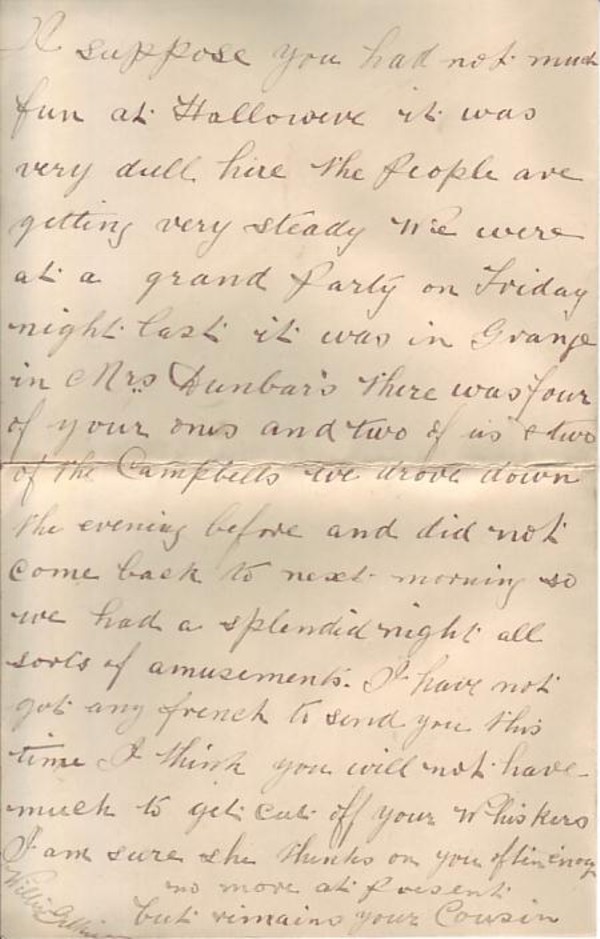 I suppose you had not much
fun at Halloweve it was
very dull hire the People are
getting very steady We were
at a grand Party on Friday
night last it was in Grange
in Mrs Dunbars there was four
of your ones and two of us & two
of the Campbells we drove down
the evening before and did not
come back to next morning so
we had a splendid night all
sorts of amusements. I have not
got any french to send you this
time I think you will not have
much to get cut off your Whiskers
I am sure she thinks on you often enoug
no more at Present
but remains your Cousin
Willie